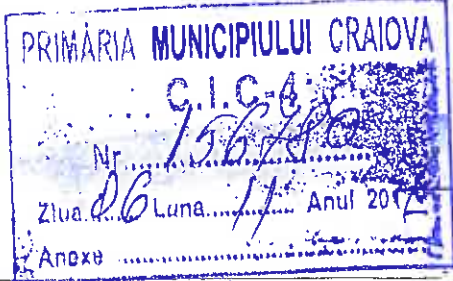 PRIMĂRIA MUNICIPIULUI CRAIOVA
C.I.C-
Nr. 156780
Ziua 06 Luna 11 Anul 2017
Anexe